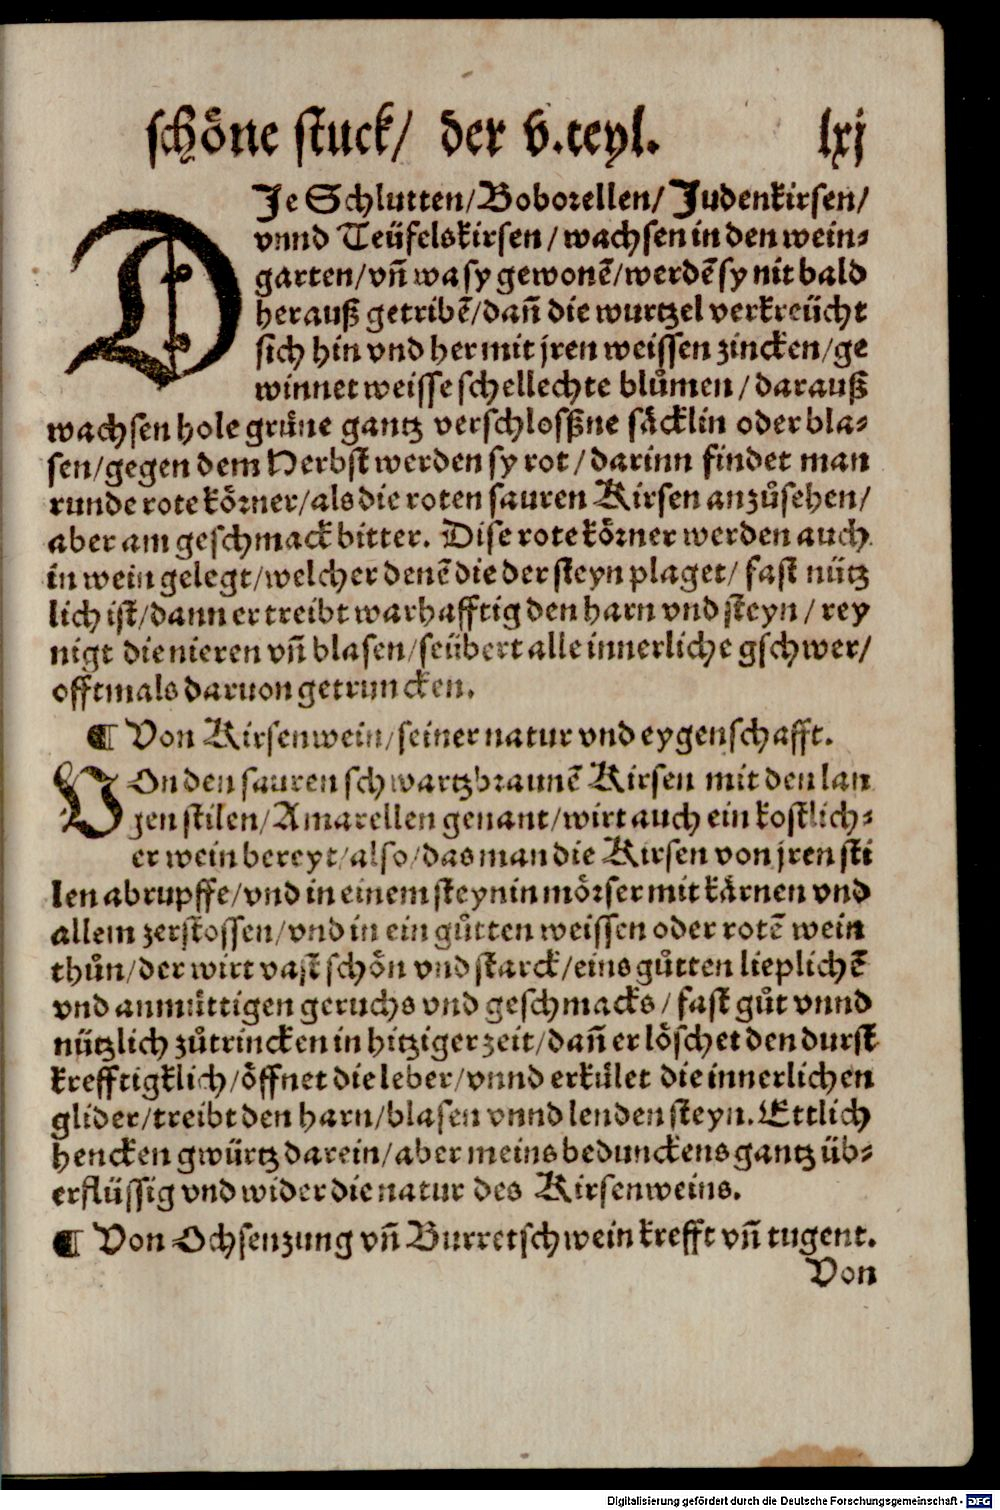 schöne stuck/ der v.teyl. lxj
DJe Schlutten/Boborellen/Judenkirsen/
vnnd Teüfelskirsen/wachsen in den wein⸗
garten/vñ wa sy gewonẽ/werdẽ sy nit bald
herauß getribẽ/dañ die wurtzel verkreücht
sich hin vnd her mit jren weissen zincken/ge
winnet weisse schellechte blůmen/darauß
wachsen hole grüne gantz verschlosßne säcklin oder bla⸗
sen/gegen dem Herbst werden sy rot/darinn findet man
runde rote körner/als die roten sauren Kirsen anzůsehen/
aber am geschmack bitter. Dise rote körner werden auch
in wein gelegt/welcher denẽ die der steyn plaget/ fast nütz
lich ist/dann er treibt warhafftig den harn vnd steyn/rey
nigt die nieren vñ blasen/seübert alle innerliche gschwer/
offtmals daruon getruncken.
¶ Von Kirsenwein/seiner natur vnd eygenschafft.
VOn den sauren schwartzbraunẽ Kirsen mit den lan
gen stilen/Amarellen genant/wirt auch ein kostlich⸗
er wein bereyt/also/das man die Kirsen von jren sti
len abrupffe/vnd in einem steynin mörser mit kärnen vnd
allem zerstossen/vnd in ein gůtten weissen oder rotẽ wein
thůn/der wirt vast schön vnd starck/eins gůtten lieplichẽ
vnd anmüttigen geruchs vnd geschmacks/fast gůt vnnd
nützlich zůtrincken in hitziger zeit/dañ er löschet den durst
krefftigklich/öffnet die leber/vnnd erkület die innerlichen
glider/treibt den harn/blasen vnnd lenden steyn.Ettlich
hencken gwürtz darein/aber meins bedunckens gantz üb⸗
erflüssig vnd wider die natur des Kirsenweins.
¶ Von Ochsenzung vñ Burretschwein krefft vñ tugent.
Von
Digitalisierung gefördert durch die Deutsche Forschungsgemeinschaft - DFG